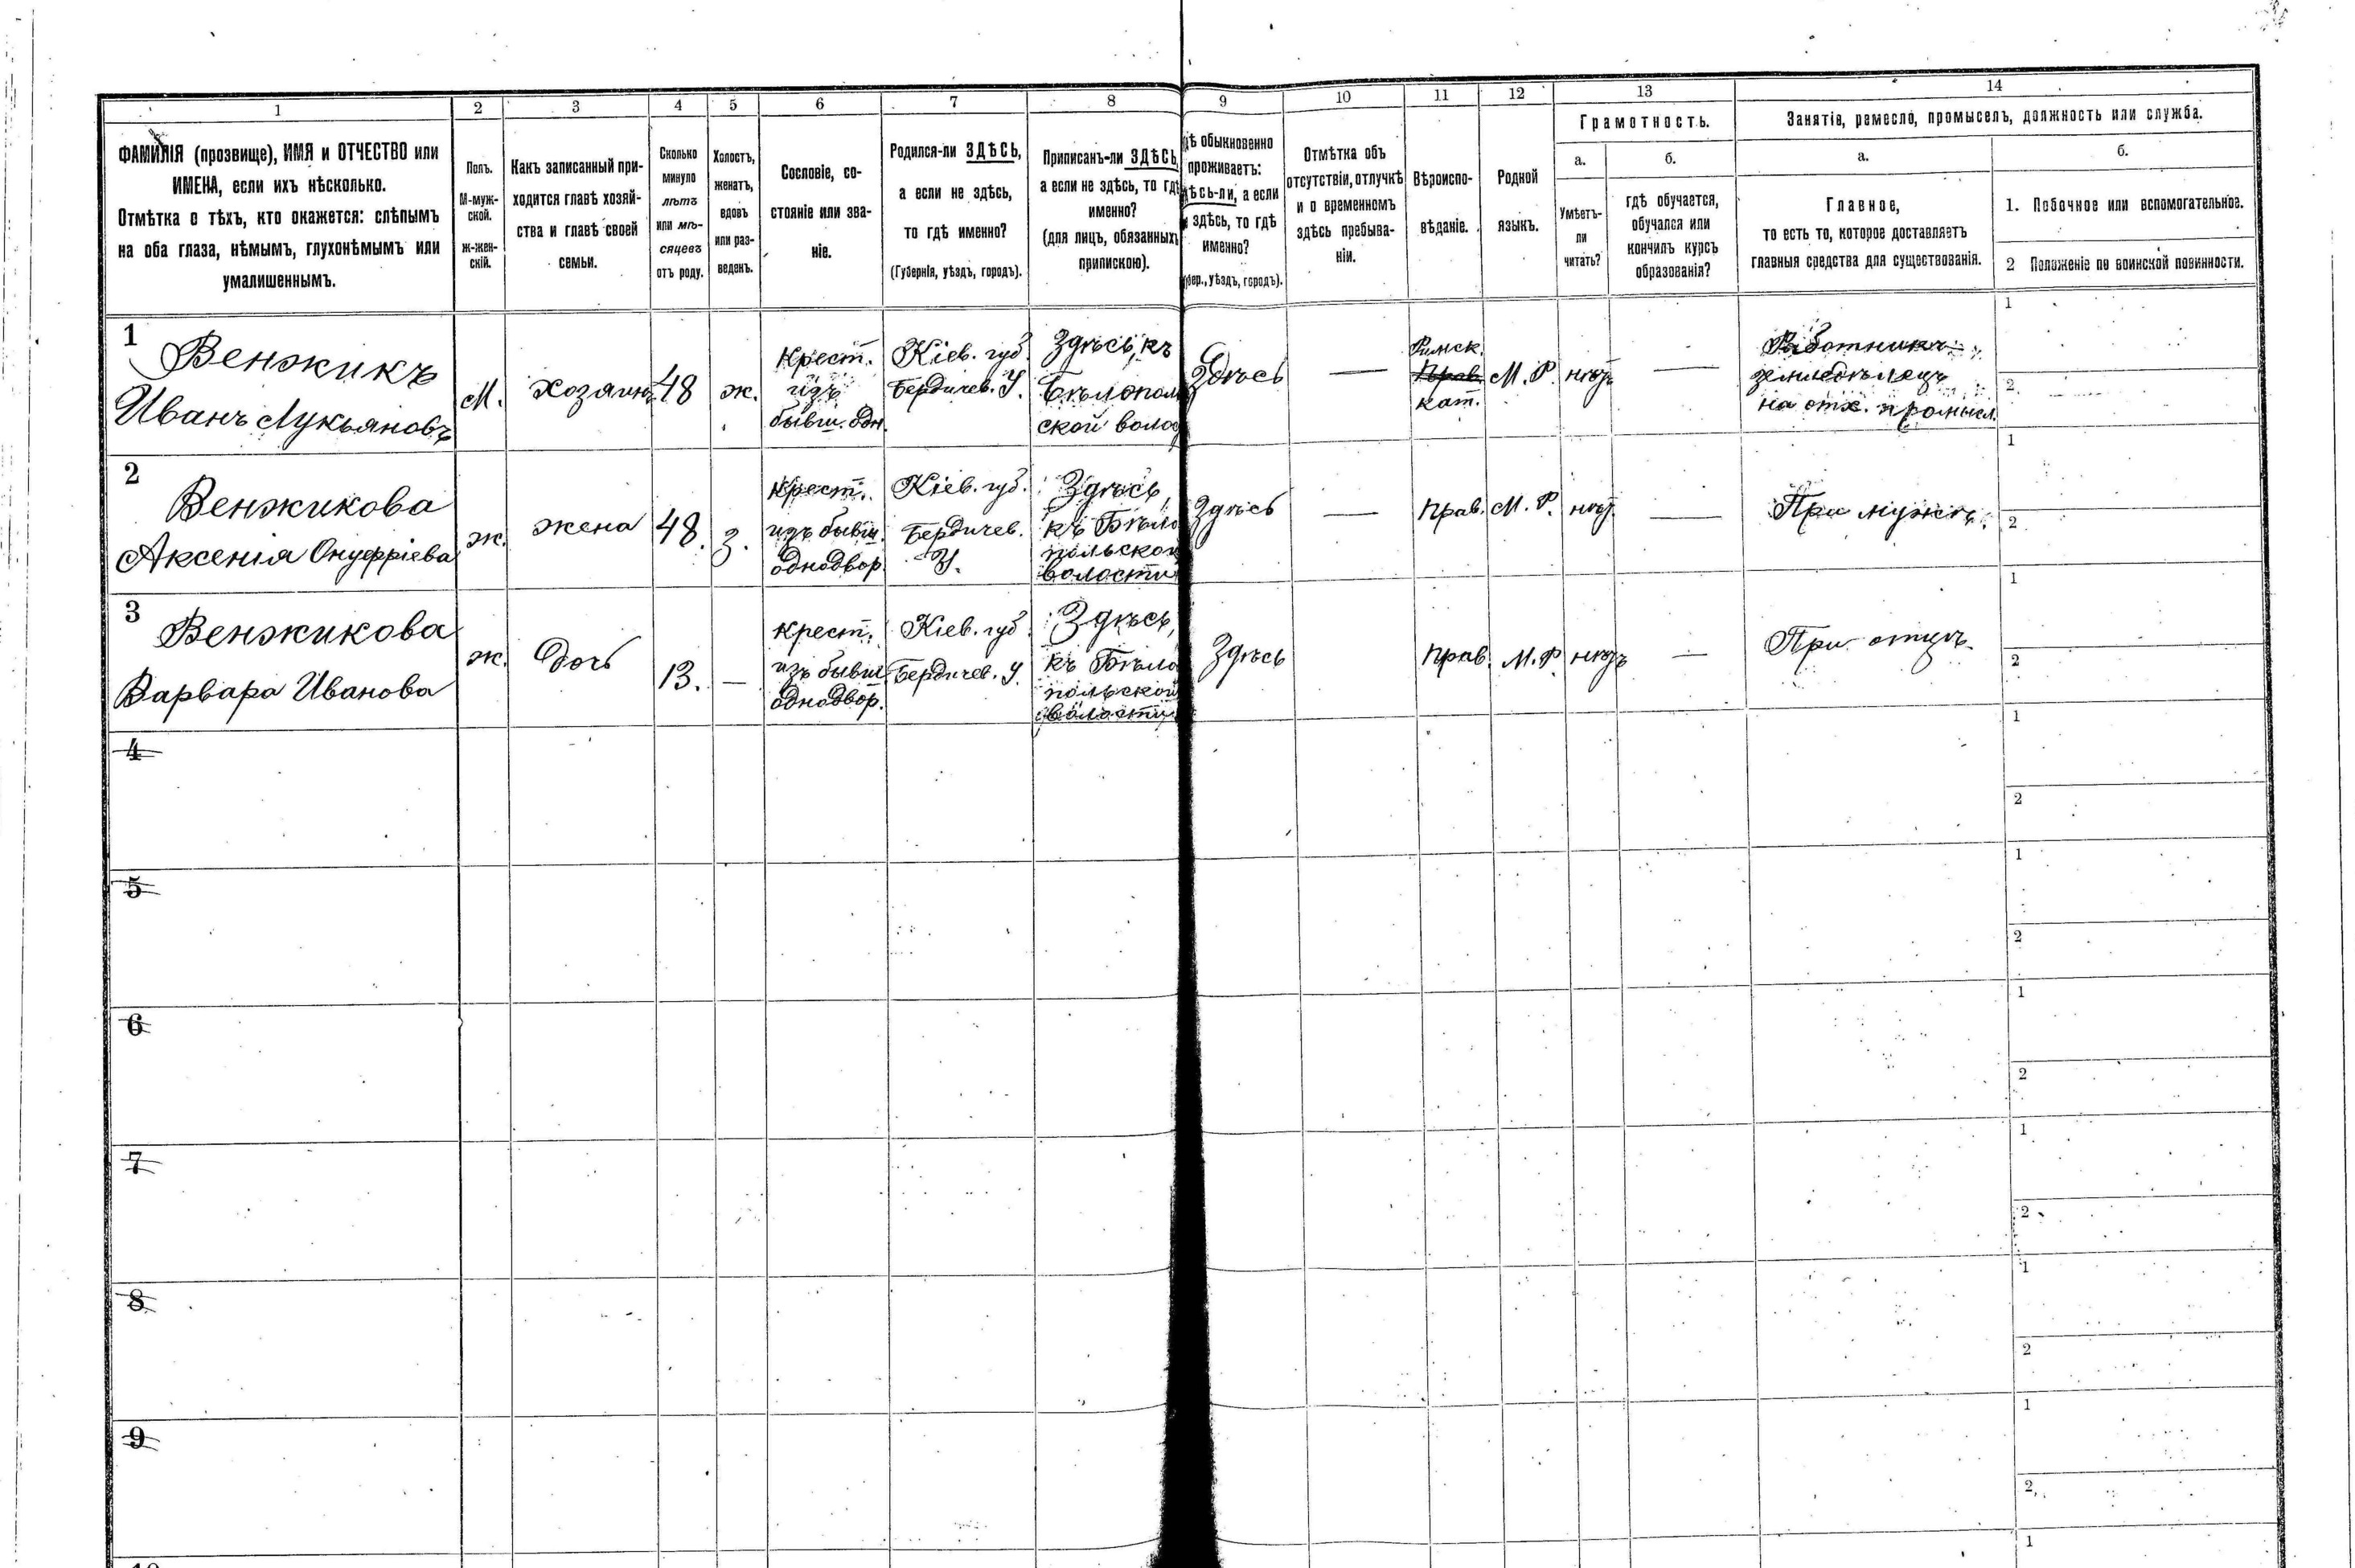 1 2 3 4 5 6 7 8 9 10 11 12 13 14
ФАМИЛІЯ (прозвище), ИМЯ и ОТЧЕСТВО или
ИМЕНА, если ихъ нѣсколько.
Отмѣтка о тѣхъ, кто окажется: слѣпымъ
на оба глаза, нѣмымъ, глухонѣмымъ или
умалишеннымъ.
Полъ.
М-муж-
ской.
ж-жен-
скій.
Какъ записанный при-
ходится главѣ хозяй-
ства и главѣ своей
семьи.
Сколько
минуло
лѣтъ
или мѣ-
сяцевъ
отъ роду.
Холостъ,
женатъ,
вдовъ
или раз-
веденъ.
Сословіе, со-
стояніе или зва-
ніе.
Родился-ли ЗДѢСЬ,
а если не здѣсь,
то гдѣ именно?
(Губернія, уѣздъ, городъ).
Приписанъ-ли ЗДѢСЬ,
а если не здѣсь, то гдѣ
именно?
(для лицъ, обязанныхъ
припискою).
ѣ обыкновенно
проживаетъ:
ѣсь-ли, а если
здѣсь, то гдѣ
именно?
бер., уѣздъ, городъ).
Отмѣтка объ
отсутствіи, отлучкѣ
и о временномъ
здѣсь пребыва-
ніи.
Вѣроиспо-
вѣданіе.
Родной
языкъ.
Грамотность.
а.
Умѣетъ-
ли
читать?
б.
гдѣ обучается,
обучался или
кончилъ курсъ
образованія?
Занятіе, ремесло, промыселъ, должность или служба.
а.
Главное,
то есть то, которое доставляетъ
главныя средства для существованія.
б.
1. Побочное или вспомогательное.
2 Положеніе по воинской повинности.
1
Венжикъ
Иванъ Лукьяновъ
М.
хозяинъ
48
ж.
Крест.
изъ
бывш. одн.
Кіев. губ.
Бердичев. У.
Здѣсь, къ
Бѣлополь
ской волос
Здѣсь
—
Римск.
Прав.
кат.
М. Р.
нѣтъ
—
Работникъ
земледѣлецъ
на отх. промысл.
1
2
2
Венжикова
Аксенія Онуфріева
ж.
жена
48.
з.
Крест.
изъ бывш.
однодвор.
Кіев. губ.
Бердичев.
У.
Здѣсь,
къ Бѣло
польской
волости
Здѣсь
—
Прав.
М. Р.
нѣт.
—
При мужѣ.
1
2
3
Венжикова
Варвара Иванова
ж.
Дочь
13.
—
Крест.
изъ бывш
однодвор.
Кіев. губ
Бердичев. У.
Здѣсь,
къ Бѣло
польской
волости
Здѣсь
Прав.
М. Р
нѣтъ
—
При отцѣ.
1
2
4
1
2
5
1
2
6
1
2
7
1
2
8
1
2
9
1
2
1